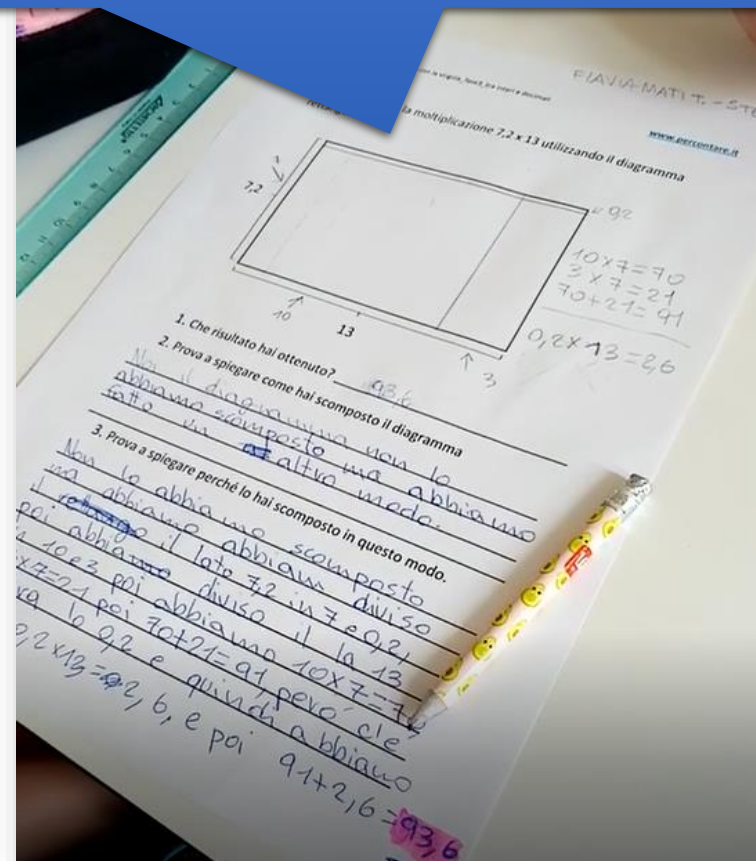 con la virgola, fawzi, tra interi e decimali
FLAVIA-MATI T. - STE
www.percontare.it
la moltiplicazione 7,2 x 13 utilizzando il diagramma
7,2
0,2
10
13
3
10x7=70
3x7=21
70+21=91
0,2x13=2,6
1. Che risultato hai ottenuto? 93,6
2. Prova a spiegare come hai scomposto il diagramma
Noi il diagramma non lo
abbiamo scomposto ma abbiamo
fatto in altro modo.
3. Prova a spiegare perché lo hai scomposto in questo modo.
Non lo abbiamo scomposto
ma abbiamo abbiam diviso
il il lato 7,2 in 7 e 0,2,
poi abbiamo diviso il la 13
in 10 e 3 poi abbiamo 10x7=70
x7=21 poi 70+21=91, però c'le
lo 0,2 e quindi abbiamo
0,2x13=2,6, e poi 91+2,6=93,6